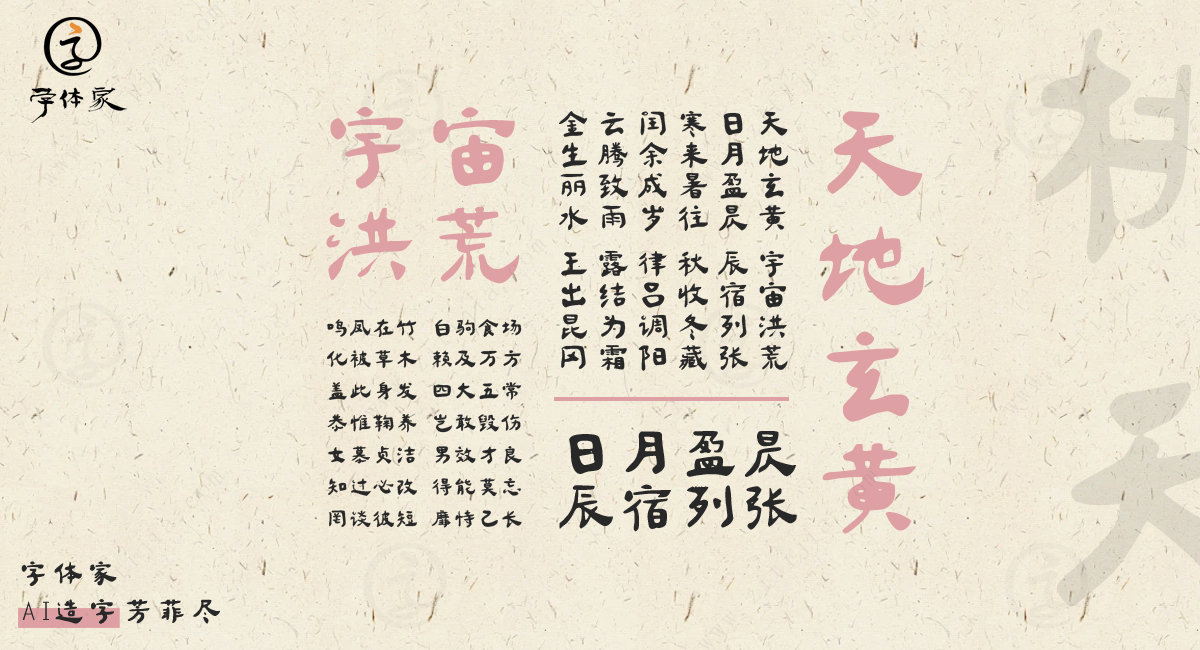 字体家
天地玄黄
天地玄黄 宇宙洪荒
日月盈昃 辰宿列张
寒来暑往 秋收冬藏
闰余成岁 律吕调阳
云腾致雨 露结为霜
金生丽水 王出昆冈
日月盈昃
辰宿列张
宇宙
洪荒
鸣凤在竹 白驹食场
化被草木 赖及万方
盖此身发 四大五常
恭惟鞠养 岂敢毁伤
女慕贞洁 男效才良
知过必改 得能莫忘
罔谈彼短 靡恃己长
字体家
AI造字芳菲尽